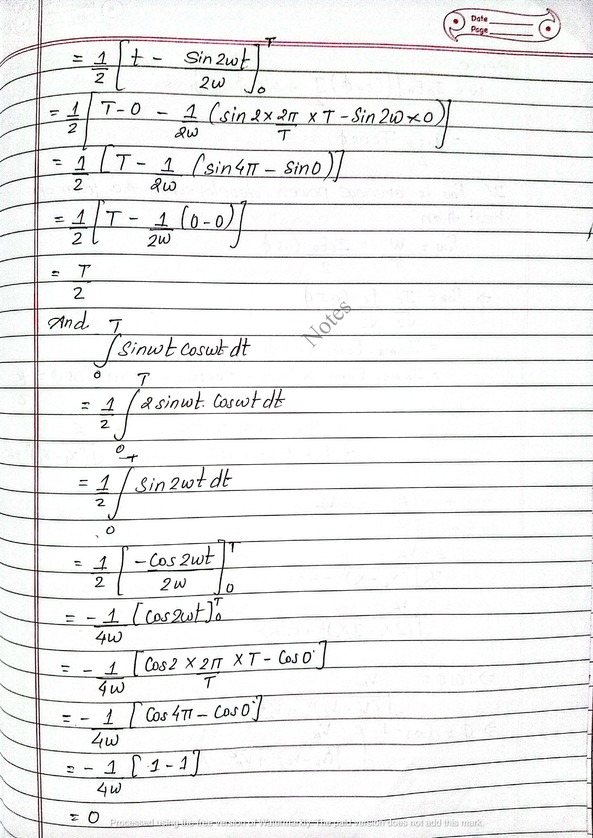 Date
Page
= 1/2 [t - Sin2wt/2w]₀ᵀ
= 1/2 [T-0 - 1/2w (sin 2×2π/T ×T - Sin2w×0)]
= 1/2 [T - 1/2w (sin4π - sin0)]
= 1/2 [T - 1/2w (0-0)]
= T/2
And
∫₀ᵀ Sinwt coswt dt
= 1/2 ∫₀ᵀ 2sinwt. Coswt dt
= 1/2 ∫₀ᵀ Sin2wt dt
= 1/2 [-Cos2wt/2w]₀ᵀ
= - 1/4w [Cos2wt]₀ᵀ
= - 1/4w [Cos2×2π/T ×T - Cos0°]
= - 1/4w [Cos4π - Cos0°]
= - 1/4w [1-1]
= 0
Notes
Processed using the free version of Watermarkly. The paid version does not add this mark.